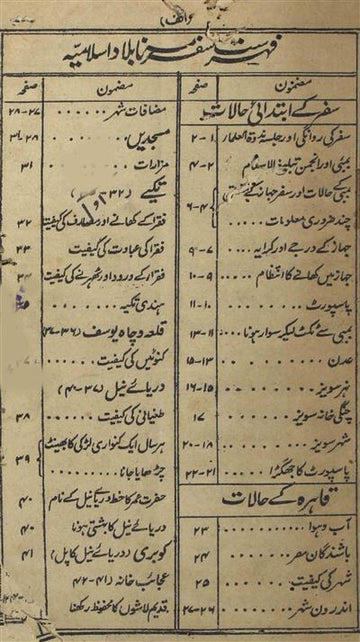 (الف)
فہرست سفرنامہ بلاد اسلامیہ
مضمون صفحہ
سفر کے ابتدائی حالات
سفر کی روانگی اور جلسہ ندوۃ العلماء ۱-۲
بمبئی اور انجمن تبلیغ الاسلام ۲-۴
بمبئی کے حالات اور سفر جہاز کے متعلق
چند ضروری معلومات ..... ۴-۶
جہاز کے درجے اور کرایہ .. ۷-۹
جہاز میں کھانے کا انتظام .... ۹-۱۰
پاسپورٹ ........ ۱۰-۱۱
بمبئی سے ٹکٹ لیکر سوار ہونا .... ۱۱-۱۳
عدن ......... ۱۳-۱۵
نہر سویز ........ ۱۵-۱۶
چنگی خانہ سویز ...... ۱۷
شہر سویز ....... ۱۸-۲۰
پاسپورٹ کا جھگڑا ...... ۲۱-۲۲
قاہرہ کے حالات
آب و ہوا ......... ۲۳
باشندگان مصر ....... ۲۴
شہر کی کیفیت ....... ۲۵
اندرون شہر ....... ۲۶-۲۷
مضمون صفحہ
مضافات شہر ...... ۲۷-۲۸
مسجدیں ........ ۲۸-۳۱
مزارات ........ ۳۱
تکیے (۳۲
فقرا کے کھانے اور مصارف کی کیفیت ۳۲
فقرا کی عبادت کی کیفیت ۳۳
فقرا کے ورود اور ٹھہرنے کی کیفیت ۳۴
ہندی تکیہ ....... ۳۵
قلعہ و چاہ یوسف (۳۶-۳۷)
کنوئیں کی کیفیت .....
دریائے نیل (۳۷-۴۰)
طغیانی کی کیفیت ...... ۳۸
ہر سال ایک کنواری لڑکی کا بھینٹ
چڑھایا جانا ..... ۳۹
حضرت عمر کا خط دریائے نیل کے نام ۴۰
دریائے نیل کا بہشتی ہونا ۴۰
کوبری (دریائے نیل کا پل) ۴۱
عجائب خانہ (۴۱-۴۲)
قدیم لاشوں کا محفوظ رکھنا